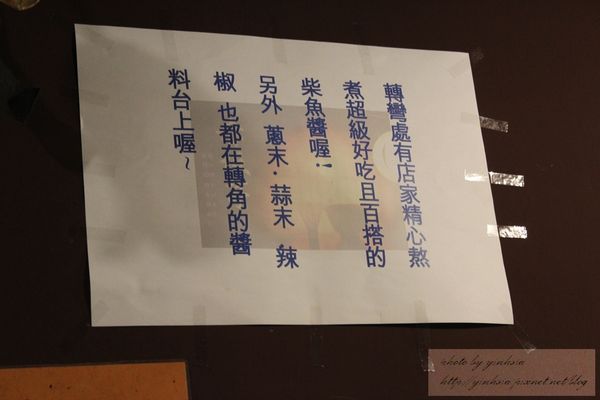 轉彎處有店家精心熬
煮超級好吃且百搭的
柴魚醬喔!
另外 蔥末·蒜末 辣
椒 也都在轉角的醬
料台上喔~
photo by yinhsia
http://yinhsia.pixnet.net/blog